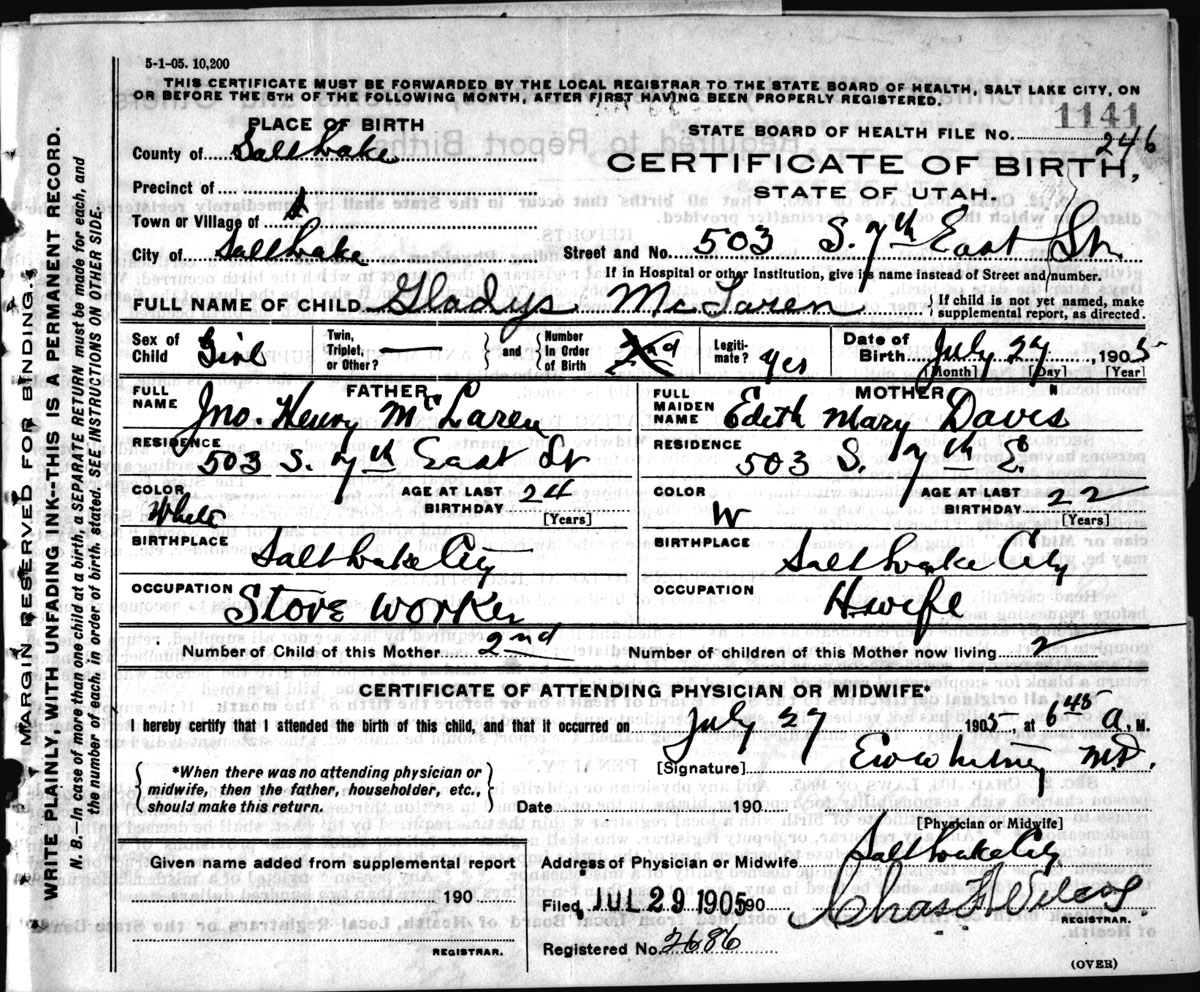 5-1-05. 10,200
THIS CERTIFICATE MUST BE FORWARDED BY THE LOCAL REGISTRAR TO THE STATE BOARD OF HEALTH, SALT LAKE CITY, ON
OR BEFORE THE 5TH OF THE FOLLOWING MONTH, AFTER FIRST HAVING BEEN PROPERLY REGISTERED.
PLACE OF BIRTH
STATE BOARD OF HEALTH FILE NO. 1141
246
County of Salt Lake
CERTIFICATE OF BIRTH,
STATE OF UTAH.
Precinct of
Town or Village of
City of Salt Lake
Street and No. 503 S. 7th East St.
If in Hospital or other Institution, give its name instead of Street and number.
FULL NAME OF CHILD Gladys McLaren { If child is not yet named, make
supplemental report, as directed.
Sex of Child Girl
Twin, Triplet, or Other? —
and Number In Order of Birth 2nd
Legitimate? yes
Date of Birth July 27, 1905
[Month] [Day] [Year]
FATHER
FULL NAME Jno. Henry McLaren
MOTHER
FULL MAIDEN NAME Edith Mary Davis
RESIDENCE 503 S. 7th East St
RESIDENCE 503 S. 7th E.
COLOR White
AGE AT LAST BIRTHDAY 24 [Years]
COLOR W
AGE AT LAST BIRTHDAY 22 [Years]
BIRTHPLACE Salt Lake City
BIRTHPLACE Salt Lake City
OCCUPATION Stove Worker
OCCUPATION Hwife
Number of Child of this Mother 2nd
Number of children of this Mother now living 2
CERTIFICATE OF ATTENDING PHYSICIAN OR MIDWIFE*
I hereby certify that I attended the birth of this child, and that it occurred on July 27 1905, at 6 45 a, M.
{ *When there was no attending physician or
midwife, then the father, householder, etc.,
should make this return. }
[Signature] E W Whitney M.D.
Date 190
[Physician or Midwife]
Given name added from supplemental report
190
REGISTRAR.
Address of Physician or Midwife. Salt Lake City
Filed JUL 29 1905 190
Chas
REGISTRAR.
Registered No. 2686
(OVER)
MARGIN RESERVED FOR BINDING.
WRITE PLAINLY, WITH UNFADING INK--THIS IS A PERMANENT RECORD.
N. B.—In case of more than one child at a birth, a SEPARATE RETURN must be made for each, and
the number of each, in order of birth, stated. SEE INSTRUCTIONS ON OTHER SIDE.